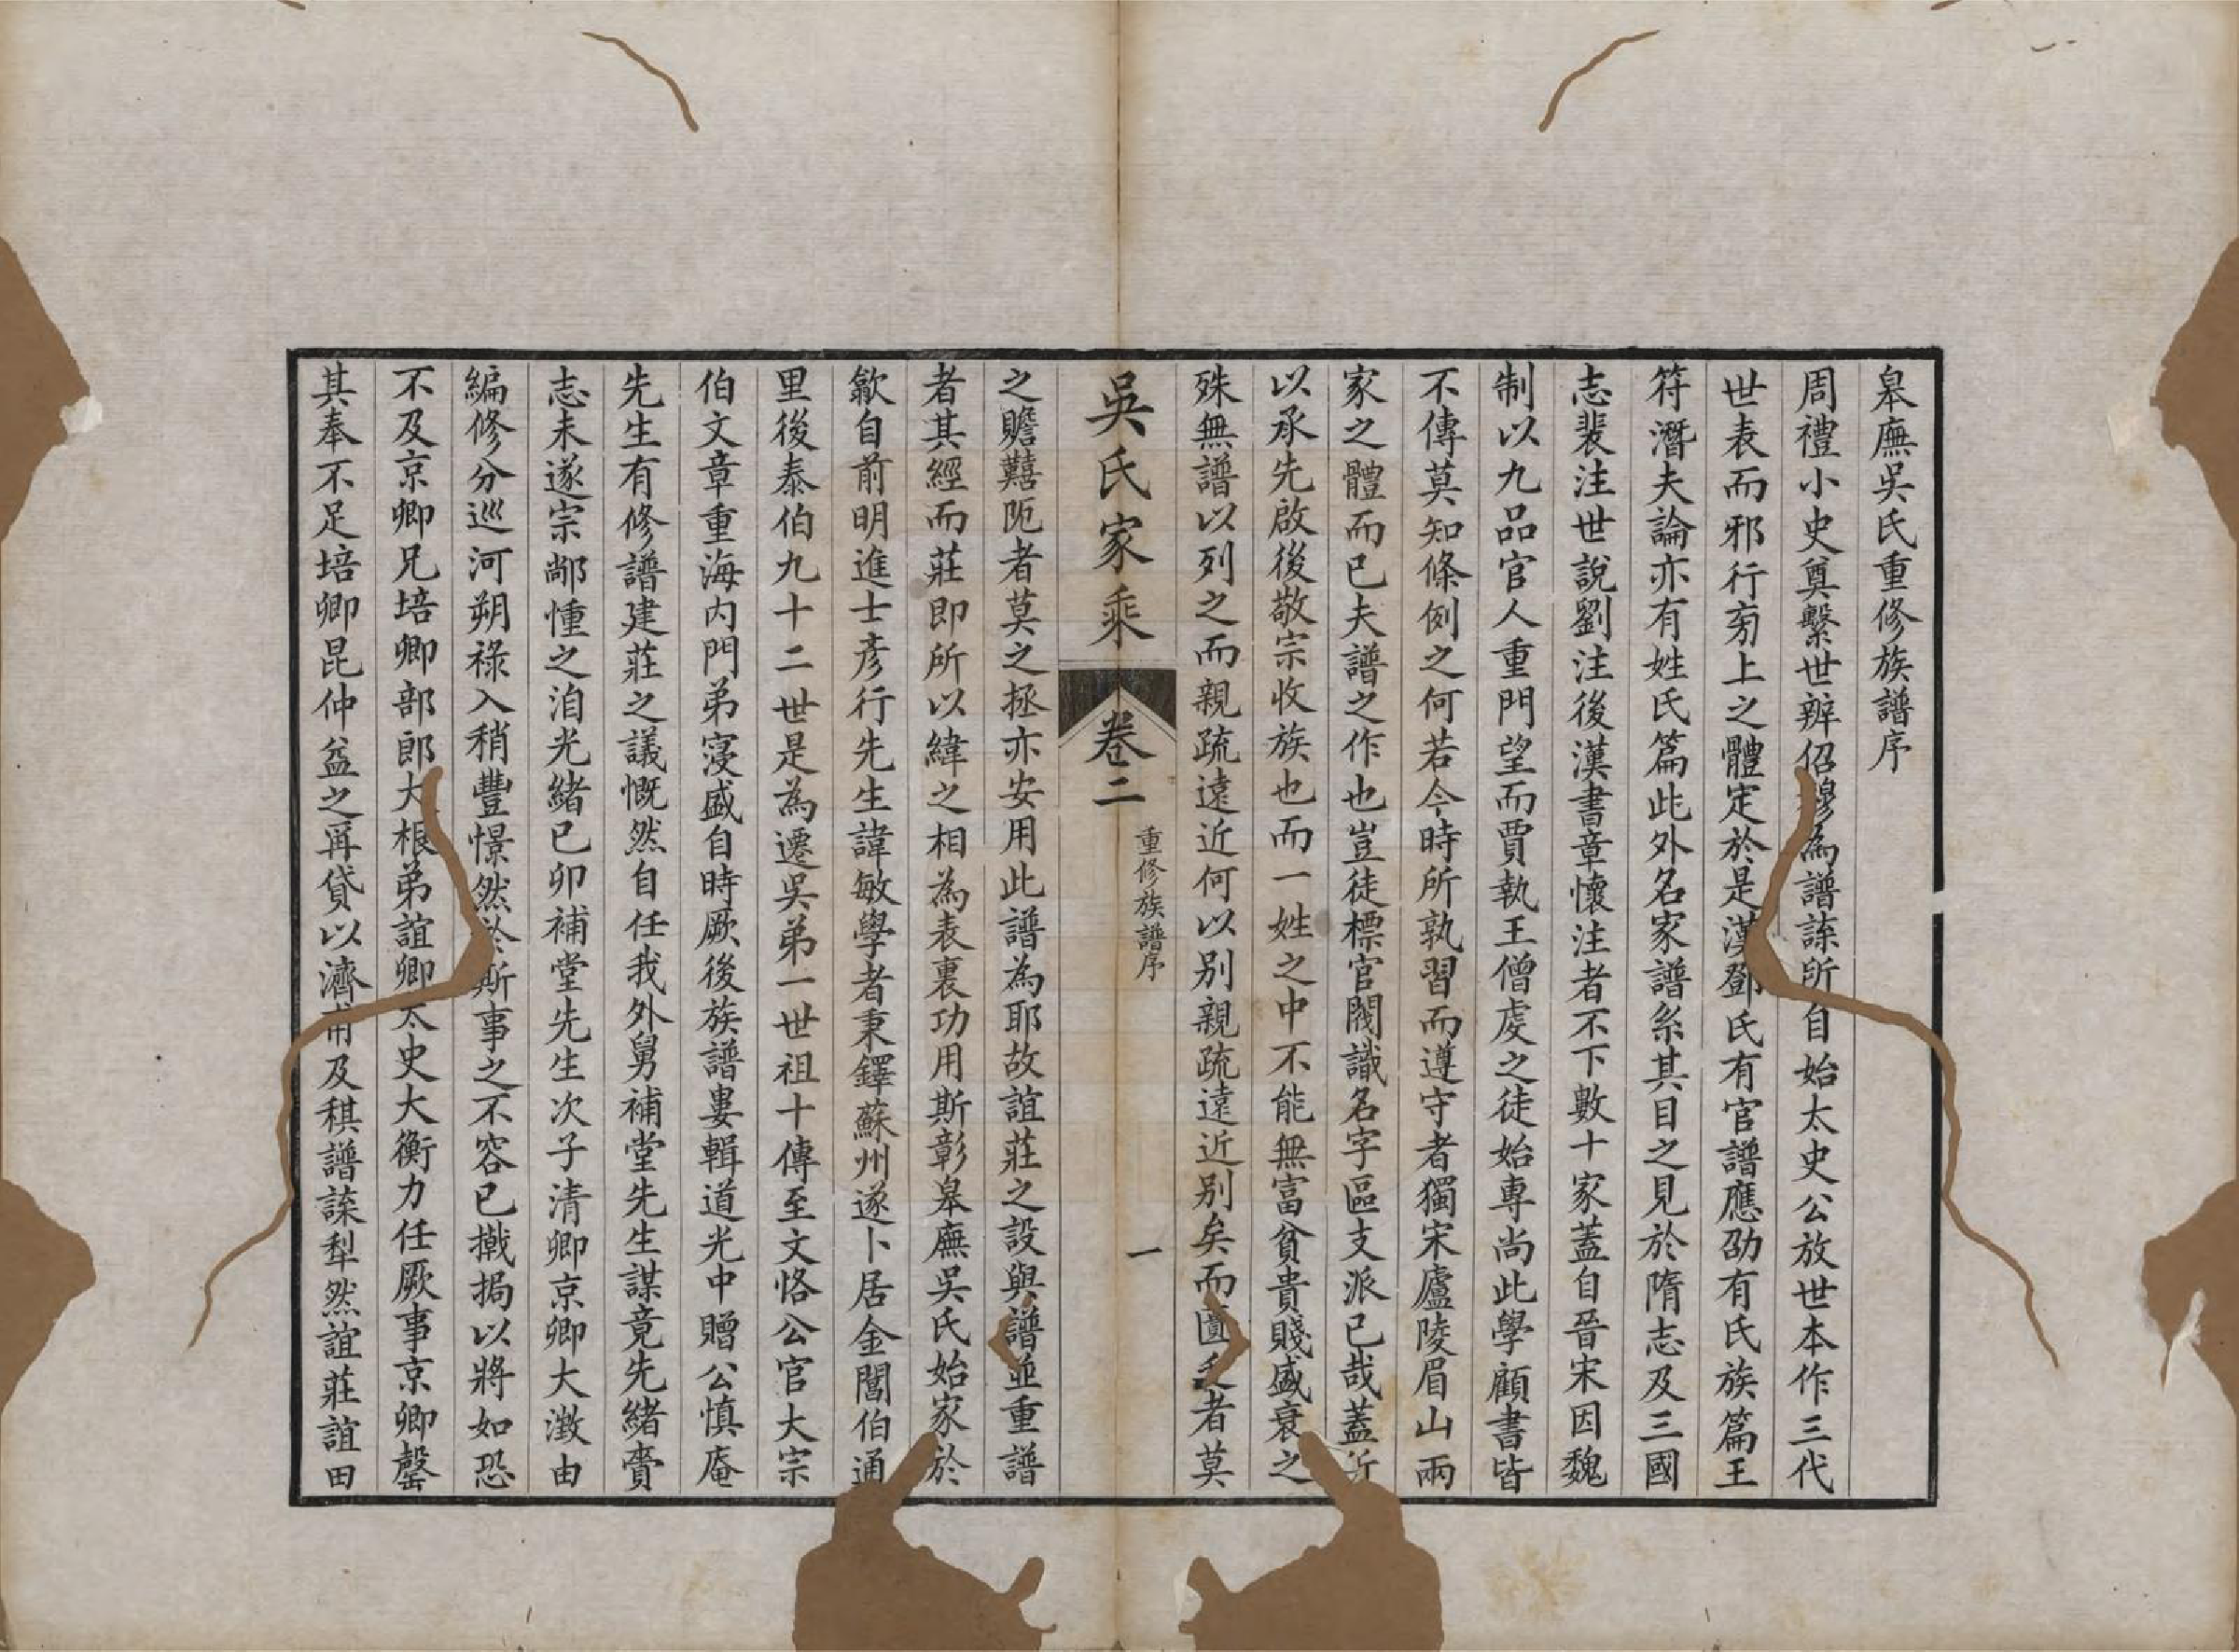 皋廡吳氏重修族譜序
周禮小史奠繫世辨佋穆為譜諜所自始太史公放世本作三代
世表而邪行㫄上之體定於是漢鄧氏有官譜應劭有氏族篇王
符潛夫論亦有姓氏篇此外名家譜系其目之見於隋志及三國
志裴注世說劉注後漢書章懷注者不下數十家蓋自晉宋因魏
制以九品官人重門望而賈執王僧虔之徒始專尚此學顧書皆
不傳莫知條例之何若今時所孰習而遵守者獨宋廬陵眉山兩
家之體而已夫譜之作也豈徒標官閥識名字區支派已哉蓋所
以承先啟後敬宗收族也而一姓之中不能無富貧貴賤盛衰之
殊無譜以列之而親疏遠近何以別親疏遠近別矣而匱乏者莫
吳氏家乘 卷二 重修族譜序 一
之贍囏阨者莫之拯亦安用此譜為耶故誼莊之設與譜並重譜
者其經而莊即所以緯之相為表裏功用斯彰皋廡吳氏始家於
歙自前明進士彥行先生諱敏學者秉鐸蘇州遂卜居金閶伯通
里後泰伯九十二世是為遷吳弟一世祖十傳至文恪公官大宗
伯文章重海內門弟寖盛自時厥後族譜婁輯道光中贈公慎庵
先生有修譜建莊之議慨然自任我外舅補堂先生謀竟先緒賫
志未遂宗鄗憧之洎光緒己卯補堂先生次子清卿京卿大澂由
編修分巡河朔祿入稍豐憬然於斯事之不容已撠挶以將如恐
不及京卿兄培卿部郎大根弟誼卿太史大衡力任厥事京卿罄
其奉不足培卿昆仲益之再貸以濟甫及稘譜諜犁然誼莊誼田